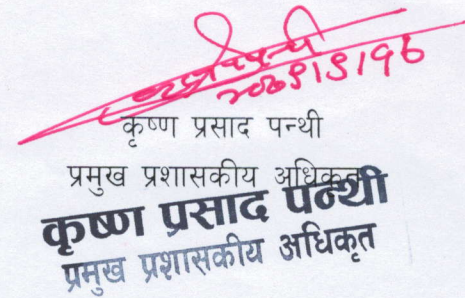 कृष्ण प्रसाद पन्थी
प्रमुख प्रशासकीय अधिकृत
कृष्ण प्रसाद पन्थी
प्रमुख प्रशासकीय अधिकृत